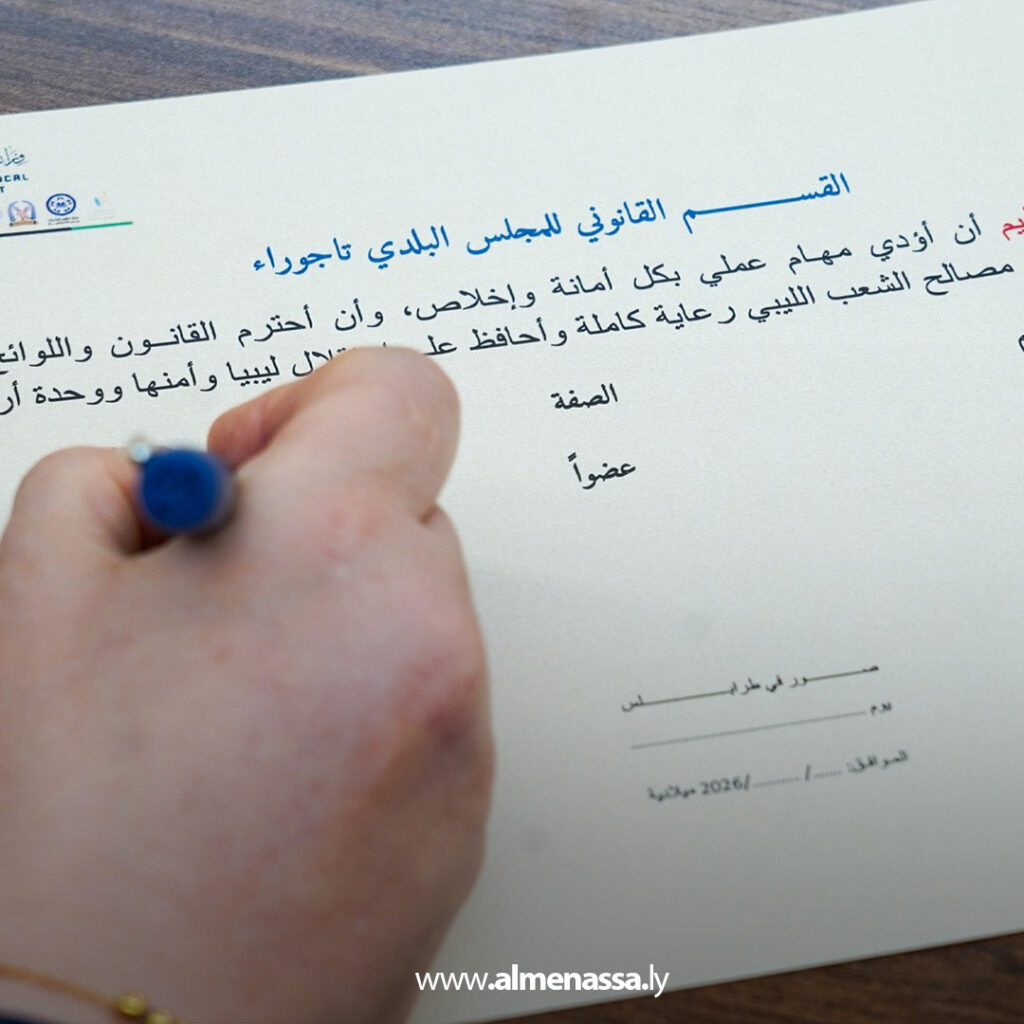 القســـــم القانوني للمجلس البلدي تاجوراء
أن أؤدي مهام عملي بكل أمانة وإخلاص، وأن أحترم القانون واللوائح
مصالح الشعب الليبي رعاية كاملة وأحافظ ليبيا وأمنها ووحدة
الصفة
عضواً
صـــــور في طرابـــــلس
يوم ..............................
الموافق: ....../ ........../2026 ميلادية
www.almenassa.ly